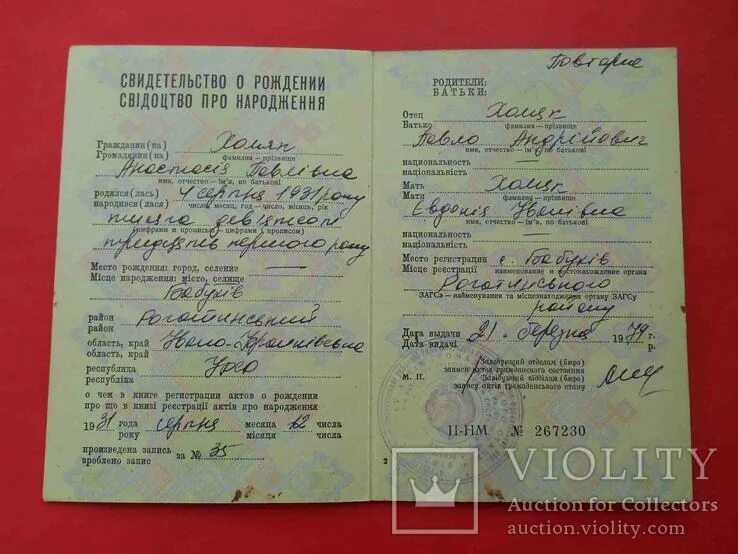 СВИДЕТЕЛЬСТВО О РОЖДЕНИИ
СВІДОЦТВО ПРО НАРОДЖЕННЯ
Гражданин (ка) Хомяк
Громадянин (ка) фамилия — прізвище
Анастасія Павлівна
имя, отчество — ім'я, по батькові
родился (лась) 4 серпня 1931 року
народився (лася) число, месяц, год — число, місяць, рік
тисяча дев'ятсот
(цифрами и прописью — цифрами і прописом)
тридцять першого року
Место рождения: город, селение —
Місце народження: місто, селище
Бабухів
район Рогатинський
район
область, край Івано-Франківська
область, край
республика Урср
республіка
о чем в книге регистрации актов о рождении
про що в книзі реєстрації актів про народження
1931 года серпня месяца 12 числа
року місяця числа
произведена запись за № 35
зроблено запис
Повторне
РОДИТЕЛИ:
БАТЬКИ:
Отец Хомяк
Батько фамилия — прізвище
Павло Андрійович
имя, отчество — ім'я, по батькові
национальность
національність
Мать Хомяк
Мати фамилия — прізвище
Євдокія Іванівна
имя, отчество — ім'я, по батькові
национальность
національність
Место регистрации с. Бабухів
Місце реєстрації наименование и местонахождение органа
Рогатинського
ЗАГСа — найменування та місцезнаходження органу ЗАГСу
району
Дата выдачи 21 " березня 1979 г.
Дата видачі р.
Заведующий отделом (бюро)
записи актов гражданского состояния
М. П. Завідуючий відділом (бюро)
запису актів громадянського стану
II-НМ № 267230
2
VIOLITY
Auction for Collectors
auction.violity.com